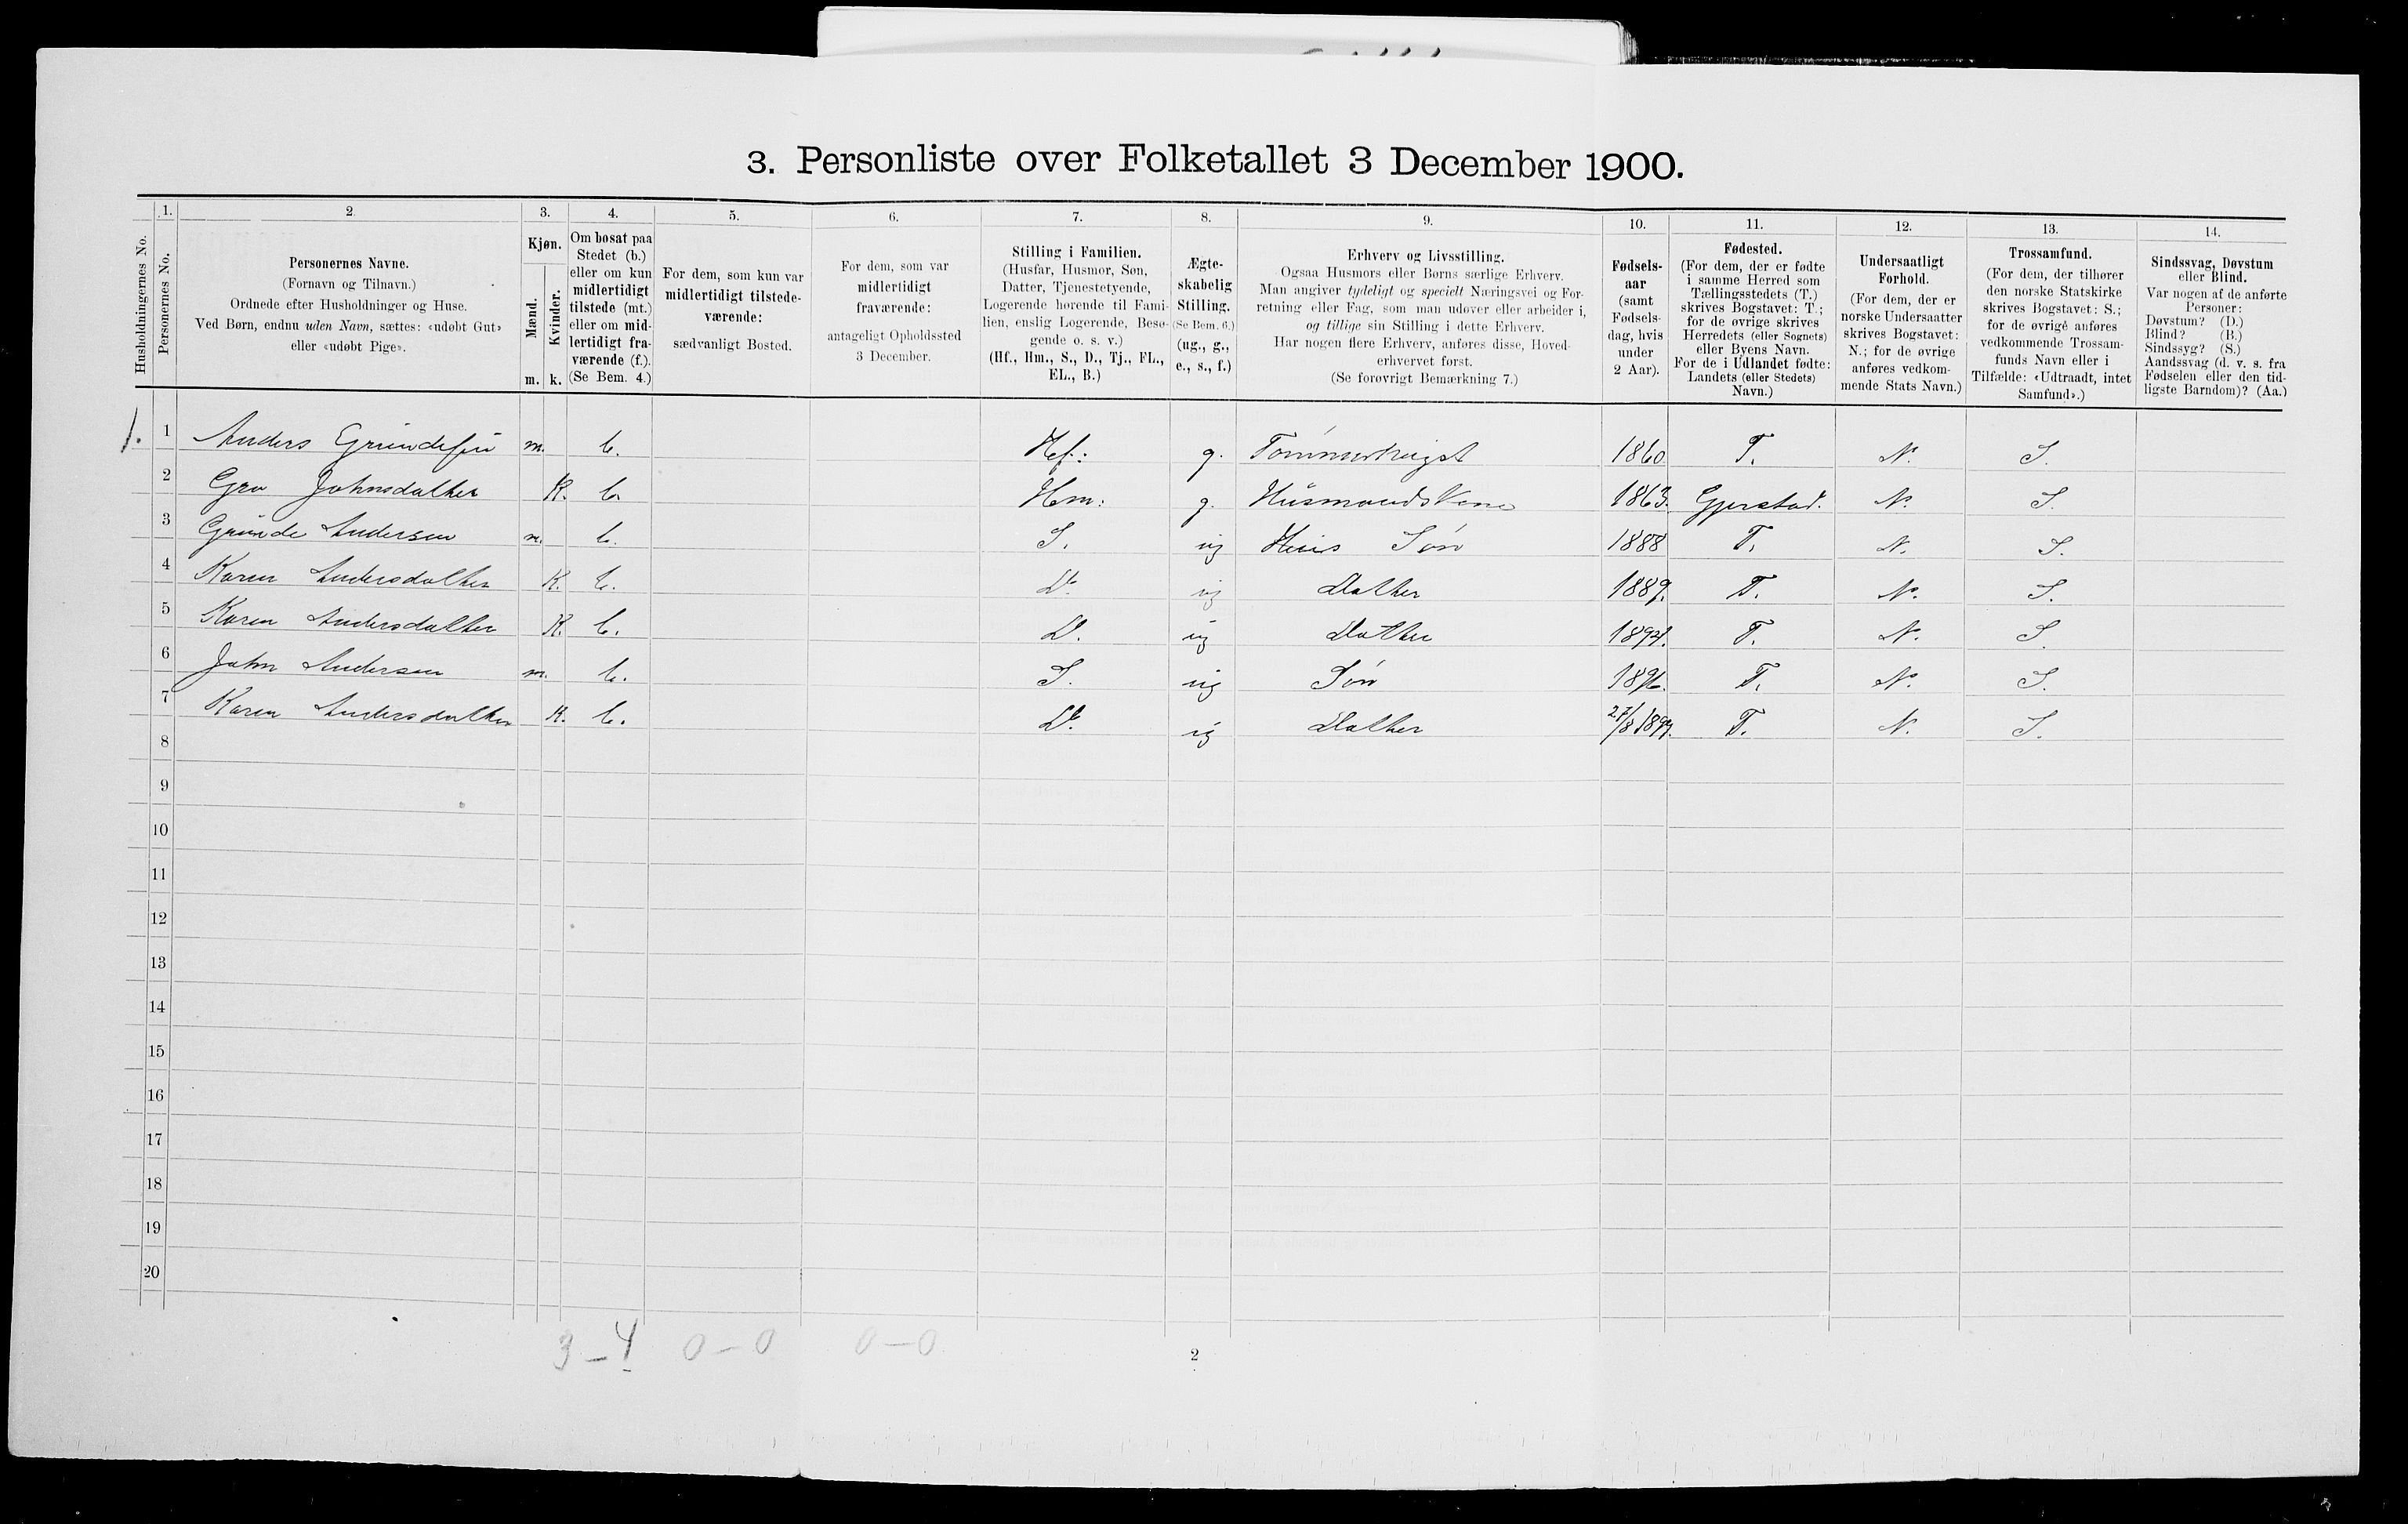 3. Personliste over Folketallet 3 December 1900.
Husholdningernes No.
1. Personernes No.
2. Personernes Navne.
(Fornavn og Tilnavn.)
Ordnede efter Husholdninger og Huse.
Ved Børn, endnu uden Navn, sættes: «udøbt Gut»
eller «udøbt Pige».
3. Kjøn.
Mænd. m.
Kvinder. k.
4. Om bosat paa
Stedet (b.)
eller om kun
midlertidigt
tilstede (mt.)
eller om mid-
lertidigt fra-
værende (f.).
(Se Bem. 4.)
5. For dem, som kun var
midlertidigt tilstede-
værende:
sædvanligt Bosted.
6. For dem, som var
midlertidigt
fraværende:
antageligt Opholdssted
3 December.
7. Stilling i Familien.
(Husfar, Husmor, Søn,
Datter, Tjenestetyende,
Logerende hørende til Fami-
lien, enslig Logerende, Besø-
gende o. s. v.)
(Hf., Hm., S., D., Tj., FL.,
EL., B.)
8. Ægte-
skabelig
Stilling.
(Se Bem. 6.)
(ug., g.,
e., s., f.)
9. Erhverv og Livsstilling.
Ogsaa Husmors eller Børns særlige Erhverv.
Man angiver tydeligt og specielt Næringsvei og For-
retning eller Fag, som man udøver eller arbeider i,
og tillige sin Stilling i dette Erhverv.
Har nogen flere Erhverv, anføres disse, Hoved-
erhvervet først.
(Se forøvrigt Bemærkning 7.)
10. Fødsels-
aar
(samt
Fødsels-
dag, hvis
under
2 Aar).
11. Fødested.
(For dem, der er fødte
i samme Herred som
Tællingsstedets (T.)
skrives Bogstavet: T.;
for de øvrige skrives
Herredets (eller Sognets)
eller Byens Navn.
For de i Udlandet fødte:
Landets (eller Stedets)
Navn.)
12. Undersaatligt
Forhold.
(For dem, der er
norske Undersaatter
skrives Bogstavet:
N.; for de øvrige
anføres vedkom-
mende Stats Navn.)
13. Trossamfund.
(For dem, der tilhører
den norske Statskirke
skrives Bogstavet: S.;
for de øvrige anføres
vedkommende Trossam-
funds Navn eller i
Tilfælde: «Udtraadt, intet
Samfund».)
14. Sindssvag, Døvstum
eller Blind.
Var nogen af de anførte
Personer:
Døvstum? (D.)
Blind? (B.)
Sindssyg? (S.)
Aandssvag (d. v. s. fra
Fødselen eller den tid-
ligste Barndom)? (Aa.)
1. 1 Anders m. b. Hf: g. 1860 T. N. S.
2 Gro Johnsdatter K. b. Hm: g. Husmandskone 1863. Gjerstad. N. S.
3 Grunde Andersen m. b. S. ug Hus Søn 1888 T. N. S.
4 Karen Andersdatter K. b. D. ug Datter 1889. T. N. S.
5 Karen Andersdatter K. b. D. ug Datter T. N. S.
6 John Andersen m. b. S. ug Søn 1896. T. N. S.
7 Karen Andersdatter K. b. D. ug Datter 27/8 1899. T. N. S.
8
9
10
11
12
13
14
15
16
17
18
19
20
3 – 4 0 – 0 0 – 0
2